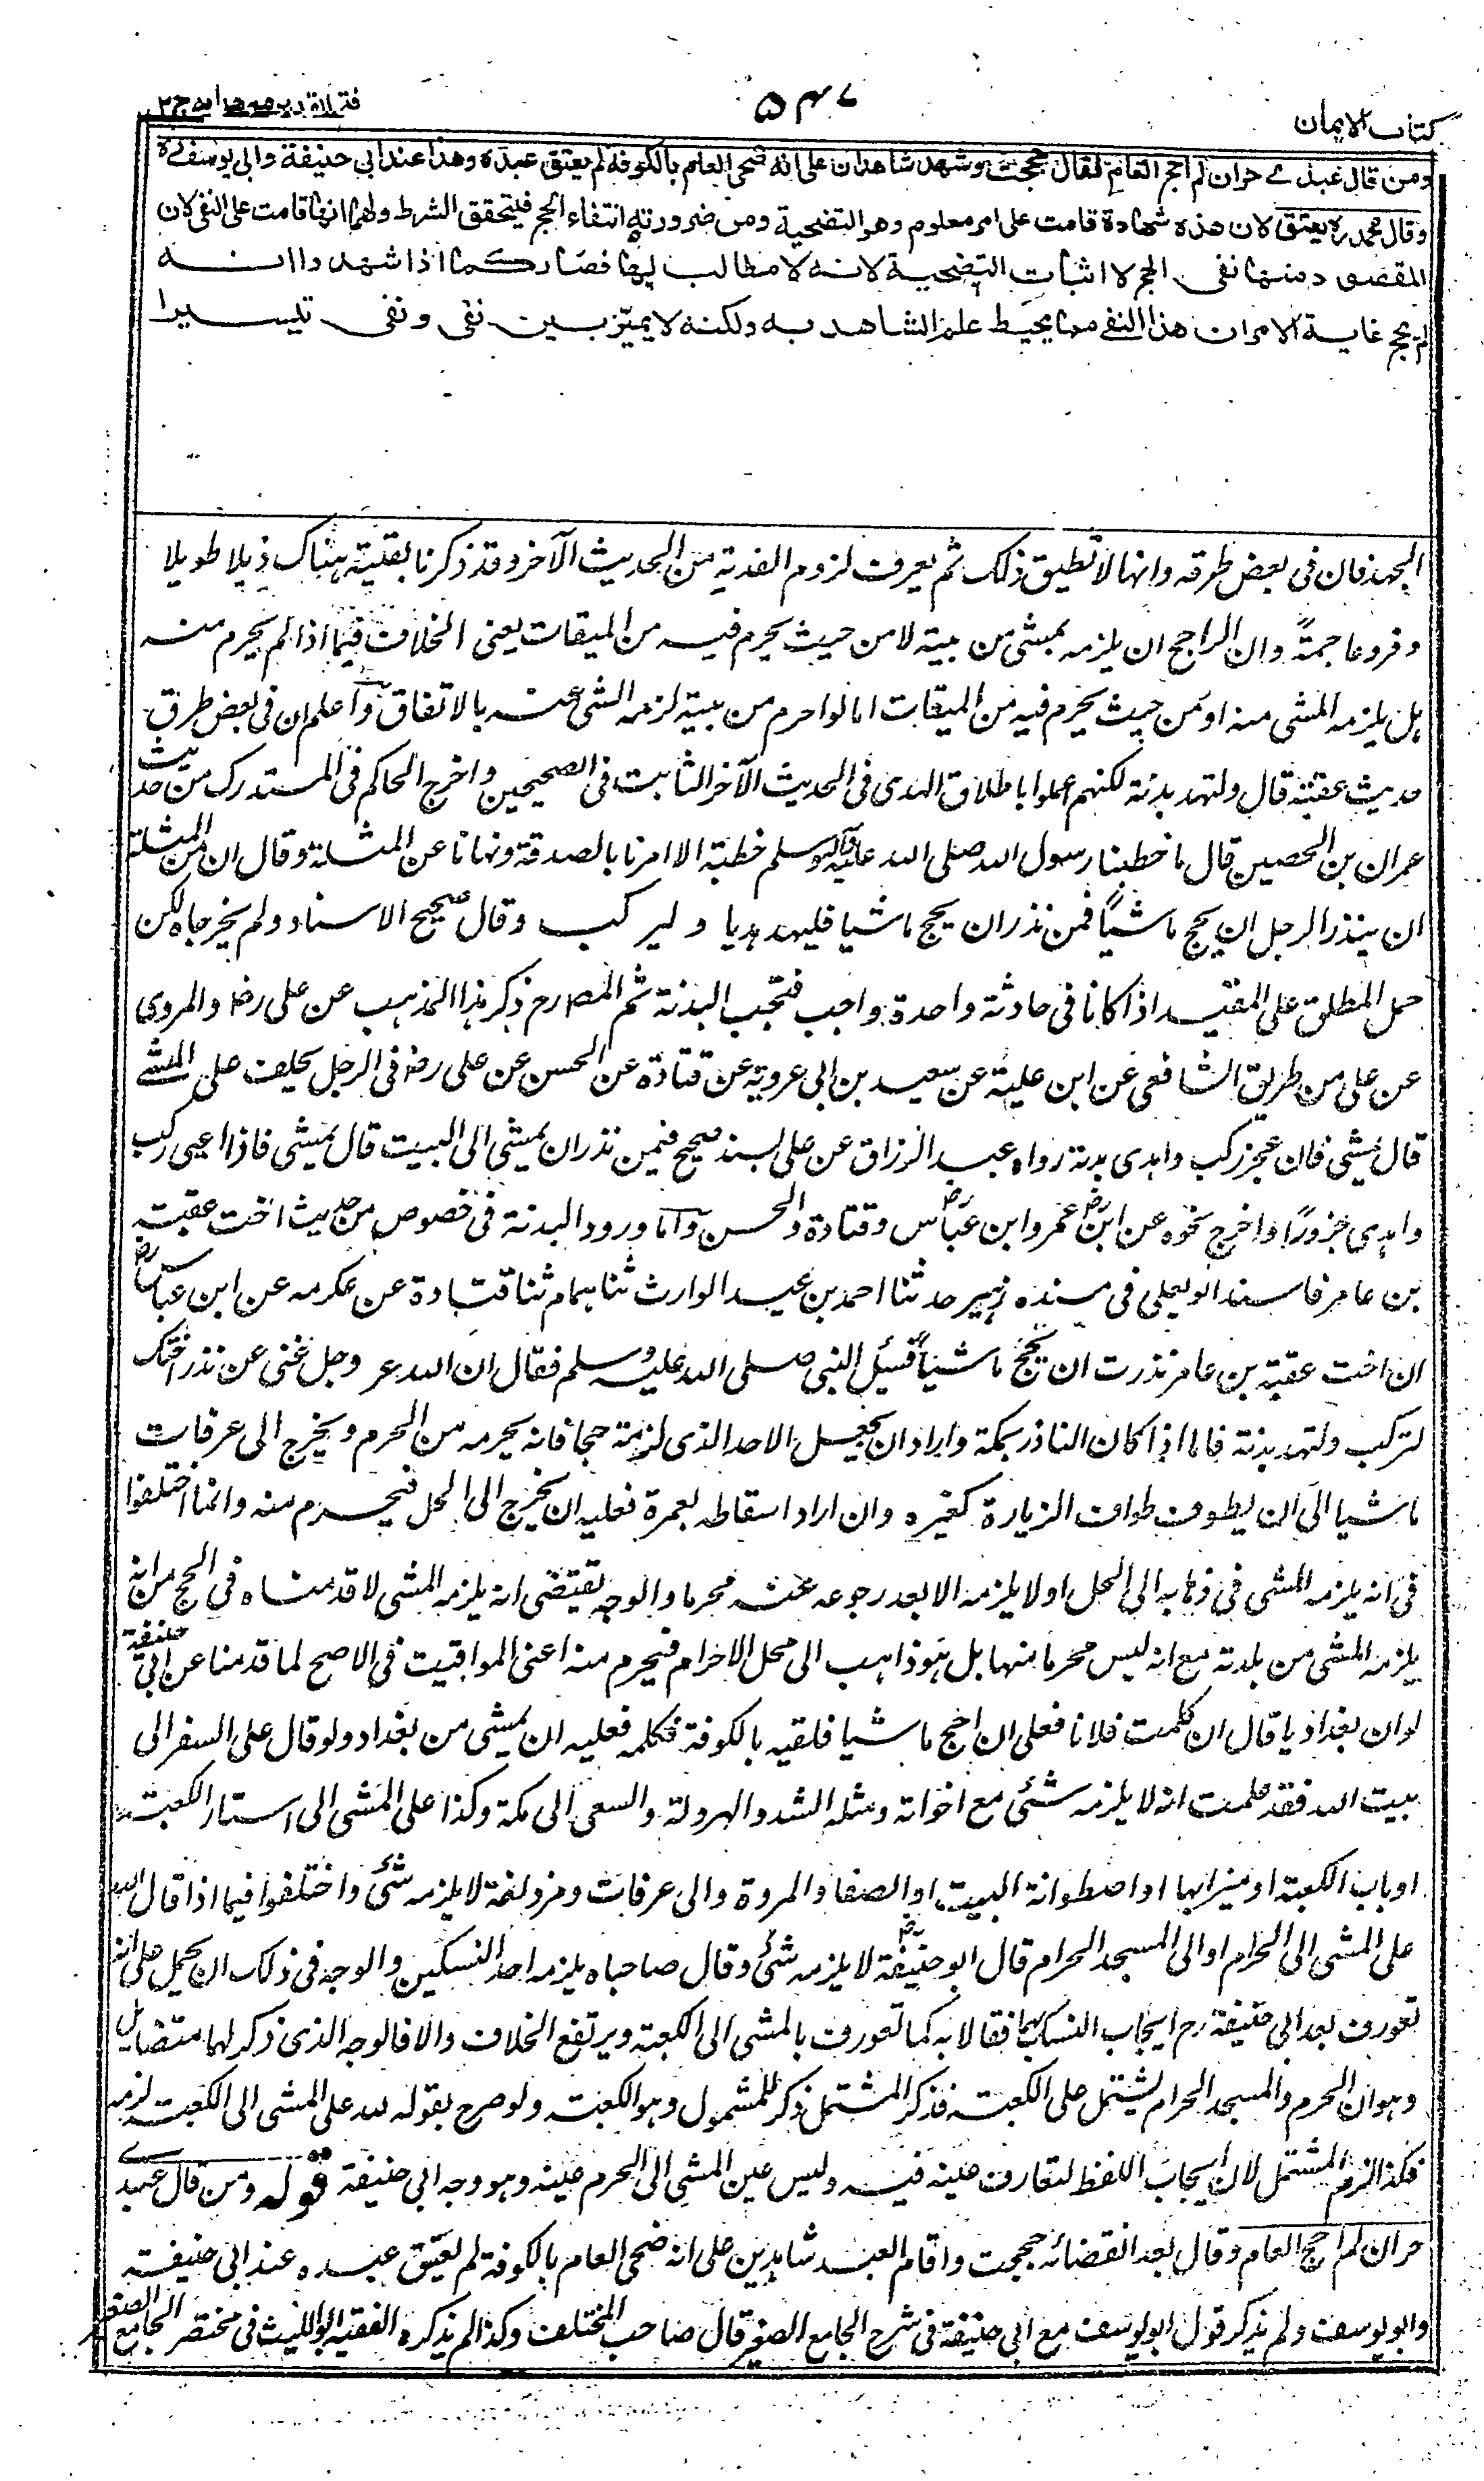 كتاب الايمان
۵۴۷
فتح القدير مع هدايه ج ٢
ومن قال عبدے حران لم احج العام فقال حججت وشهد شاهدان على انه ضحى العام بالكوفة لم يعتق عبده وهذا عند ابي حنيفة وابي يوسف ره
وقال محمد ره يعتق لان هذه شهادة قامت على امر معلوم وهو التضحية ومن ضرورته انتفاء الحج فيتحقق الشرط ولهما انها قامت على النفى لان
المقصود منها نفى الحج لا اثبات التضحية لانه لا مطالب لها فصار كما اذا شهدوا انه
لم يحج غاية الامر ان هذا النفے مما يحيط علم الشاهد به ولكنه لا يميز بين نفى ونفى تيسيرا
الجهد فان فى بعض طرقه وانها لا تطيق ذلك ثم يعرف لزوم الفدية من الحديث الآخر وقد ذكرنا بقيته هناك ذيلا طويلا
وفروعا جمة وان الراجح ان يلزمه يمشى من بيته لا من حيث يحرم فيه من الميقات يعنى الخلاف فيما اذا لم يحرم منه
بل يلزمه المشى منه او من حيث يحرم فيه من الميقات اما لو احرم من بيته لزمه المشى عنه بالاتفاق واعلم ان فى بعض طرق
حديث عقبة قال ولتهد بدنة لكنهم عملوا باطلاق الهدى فى الحديث الآخر الثابت فى الصحيحين واخرج الحاكم فى المستدرك من حديث
عمران بن الحصين قال ما خطبنا رسول الله صلى الله عليه وآله وسلم خطبة الا امرنا بالصدقة ونهانا عن المثلة وقال ان من المثلة
ان ينذر الرجل ان يحج ماشياً فمن نذر ان يحج ماشيا فليهد هديا وليركب وقال صحيح الاسناد ولم يخرجاه لكن
حمل المطلق على المقيد اذا كانا فى حادثة واحدة واجب فتجب البدنة ثم المصـ رح ذكر هذا المذهب عن على رضـ والمروى
عن على من طريق الشافعى عن ابن علية عن سعيد بن ابى عروبة عن قتادة عن الحسن عن على رضـ فى الرجل يحلف على المشے
قال يمشى فان عجز ركب واهدى بدنة رواه عبد الرزاق عن على بسند صحيح فيمن نذر ان يمشى الى البيت قال يمشى فاذا اعيى ركب
واهدى جزورًا واخرج نحوه عن ابن عمر وابن عباس رضـ وقتادة والحسن واما ورود البدنة فى خصوص من حديث اخت عقبة
بن عامر فاسند ابو يعلى فى مسنده زهير حدثنا احمد بن عبد الوارث ثنا همام ثنا قتادة عن عكرمه عن ابن عباس رضـ
ان اخت عقبة بن عامر نذرت ان يحج ماشياً فسئل النبى صلى الله عليه وسلم فقال ان الله عز وجل غنى عن نذر اختك
لتركب ولتهد بدنة فاما اذا كان الناذر بمكة واراد ان يجعل الاحد الذى لزمه حجا فانه يحرمه من الحرم ويخرج الى عرفات
ماشيا الى ان يطوف طواف الزيارة كغيره وان اراد اسقاطه بعمرة فعليه ان يخرج الى الحل فيحرم منه وانما اختلفوا
فى انه يلزمه المشى فى ذهابه الى الحل او لا يلزمه الا بعد رجوعه عنه محرما والوجه يقتضى انه يلزمه المشى لا قدمناه فى الحج من انه
يلزمه المشى من بلدته مع انه ليس محرما منها بل هو ذاهب الى محل الاحرام فيحرم منه اعنى المواقيت فى الاصح لما قدمنا عن ابى حنيفة
لو ان بغداديا قال ان كلمت فلانا فعلى ان احج ماشيا فلقيه بالكوفة فكلمه فعليه ان يمشى من بغداد ولو قال على السفر الى
بيت الله فقد علمت انه لا يلزمه شئ مع اخواته ومثله الشد والهرولة والسعى الى مكة وكذا على المشى الى استار الكعبة
او باب الكعبة او ميزابها او اصطوانة البيت او الصفا والمروة والى عرفات ومزدلفة لا يلزمه شئ واختلفوا فيما اذا قال لله
على المشى الى الحرام او الى المسجد الحرام قال ابو حنيفة رضـ لا يلزمه شئ وقال صاحباه يلزمه احد النسكين والوجه فى ذلك ان يحمل على انه
تعورف بعد ابى حنيفة رح ايجاب النسك بهما فقالا به كما تعورف بالمشى الى الكعبة ويرتفع الخلاف والا فالوجه الذى ذكر لهما متضائل
وهو ان الحرم والمسجد الحرام يشتمل على الكعبة فذكر المشتمل ذكر للمشمول وهو الكعبة ولو صرح بقوله لله على المشى الى الكعبة لزمه
فكذا لزم المشتمل لان ايجاب اللفظ لتعارف عينه فيه وليس عين المشى الى الحرم عينه وهو وجه ابى حنيفة قوله ومن قال عبدے
حران لم احج العام وقال بعد انقضائه حججت واقام العبد شاهدين على انه ضحى العام بالكوفة لم يعتق عبده عند ابى حنيفة
وابو يوسف ولم يذكر قول ابو يوسف مع ابى حنيفة فى شرح الجامع الصغير قال صاحب المختلف وكذا لم يذكره الفقيه ابو الليث فى مختصر الجامع الصغير